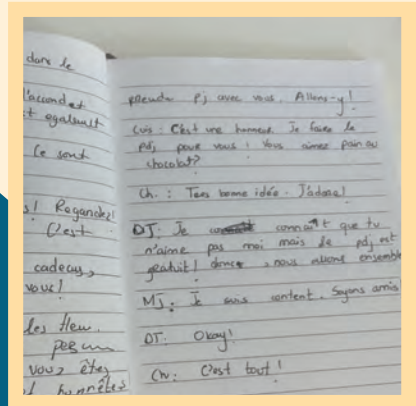 dans le
l'accord et
et également
Ce sont
s! Regardez!
C'est
cadeau,
vous!
les fleur.
vous êtes
honnêtes
prendre Pj avec vous. Allons-y!
Cuis: C'est une honneur. Je faire le
pdj pour vous! Vous aimez pain au
chocolat?
Ch. : Très bonne idée. J'adore!
DJ: Je connaît que tu
n'aime pas moi mais le pdj est
gratuit! donc, nous allons ensemble
MJ: Je suis content. Soyons amis
DJ: Okay!
Ch: C'est tout!